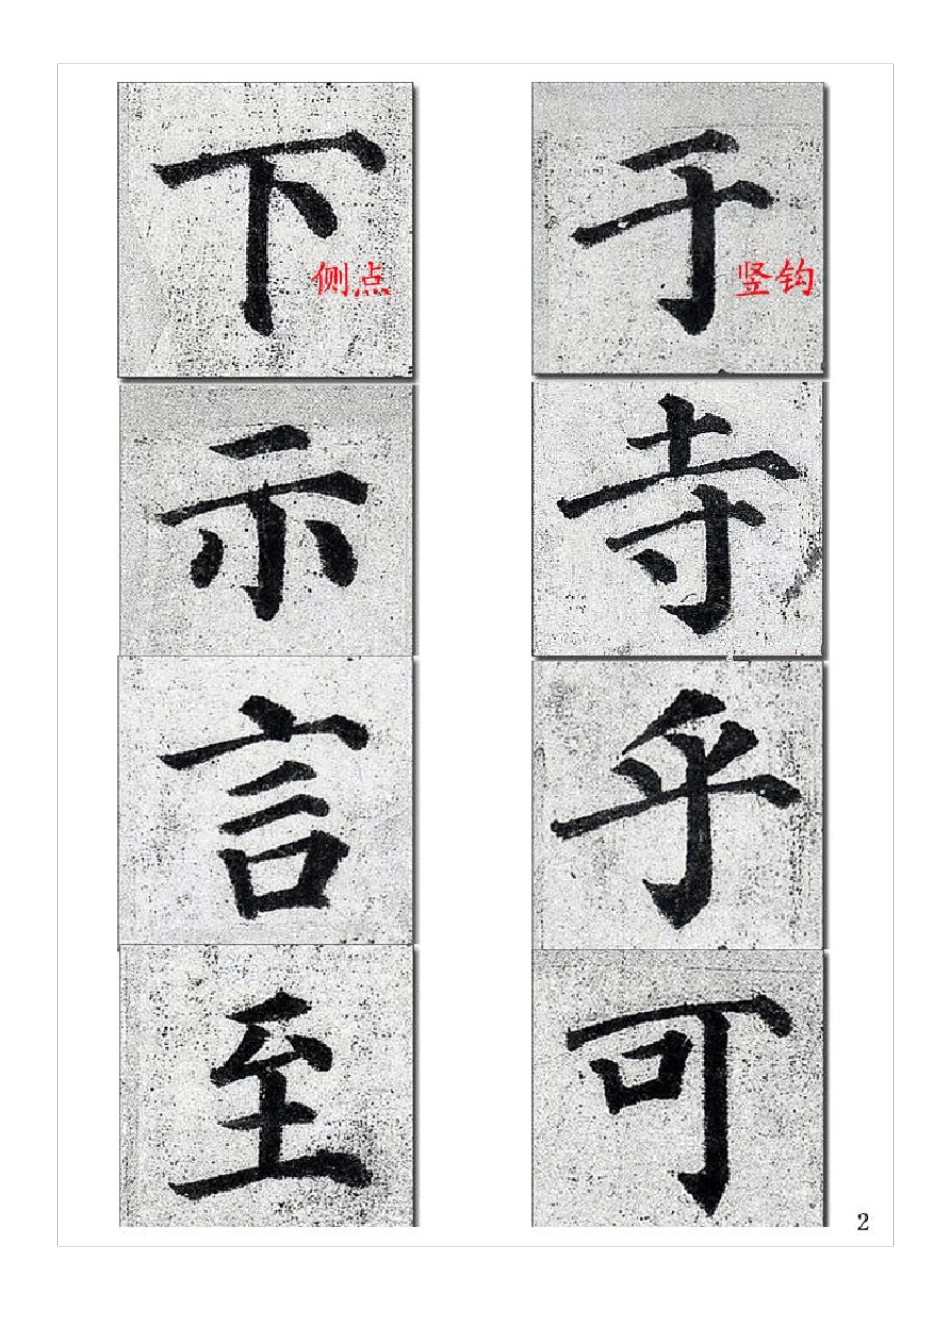 下
侧点
示
言
至
于
竖钩
寺
乎
可
2